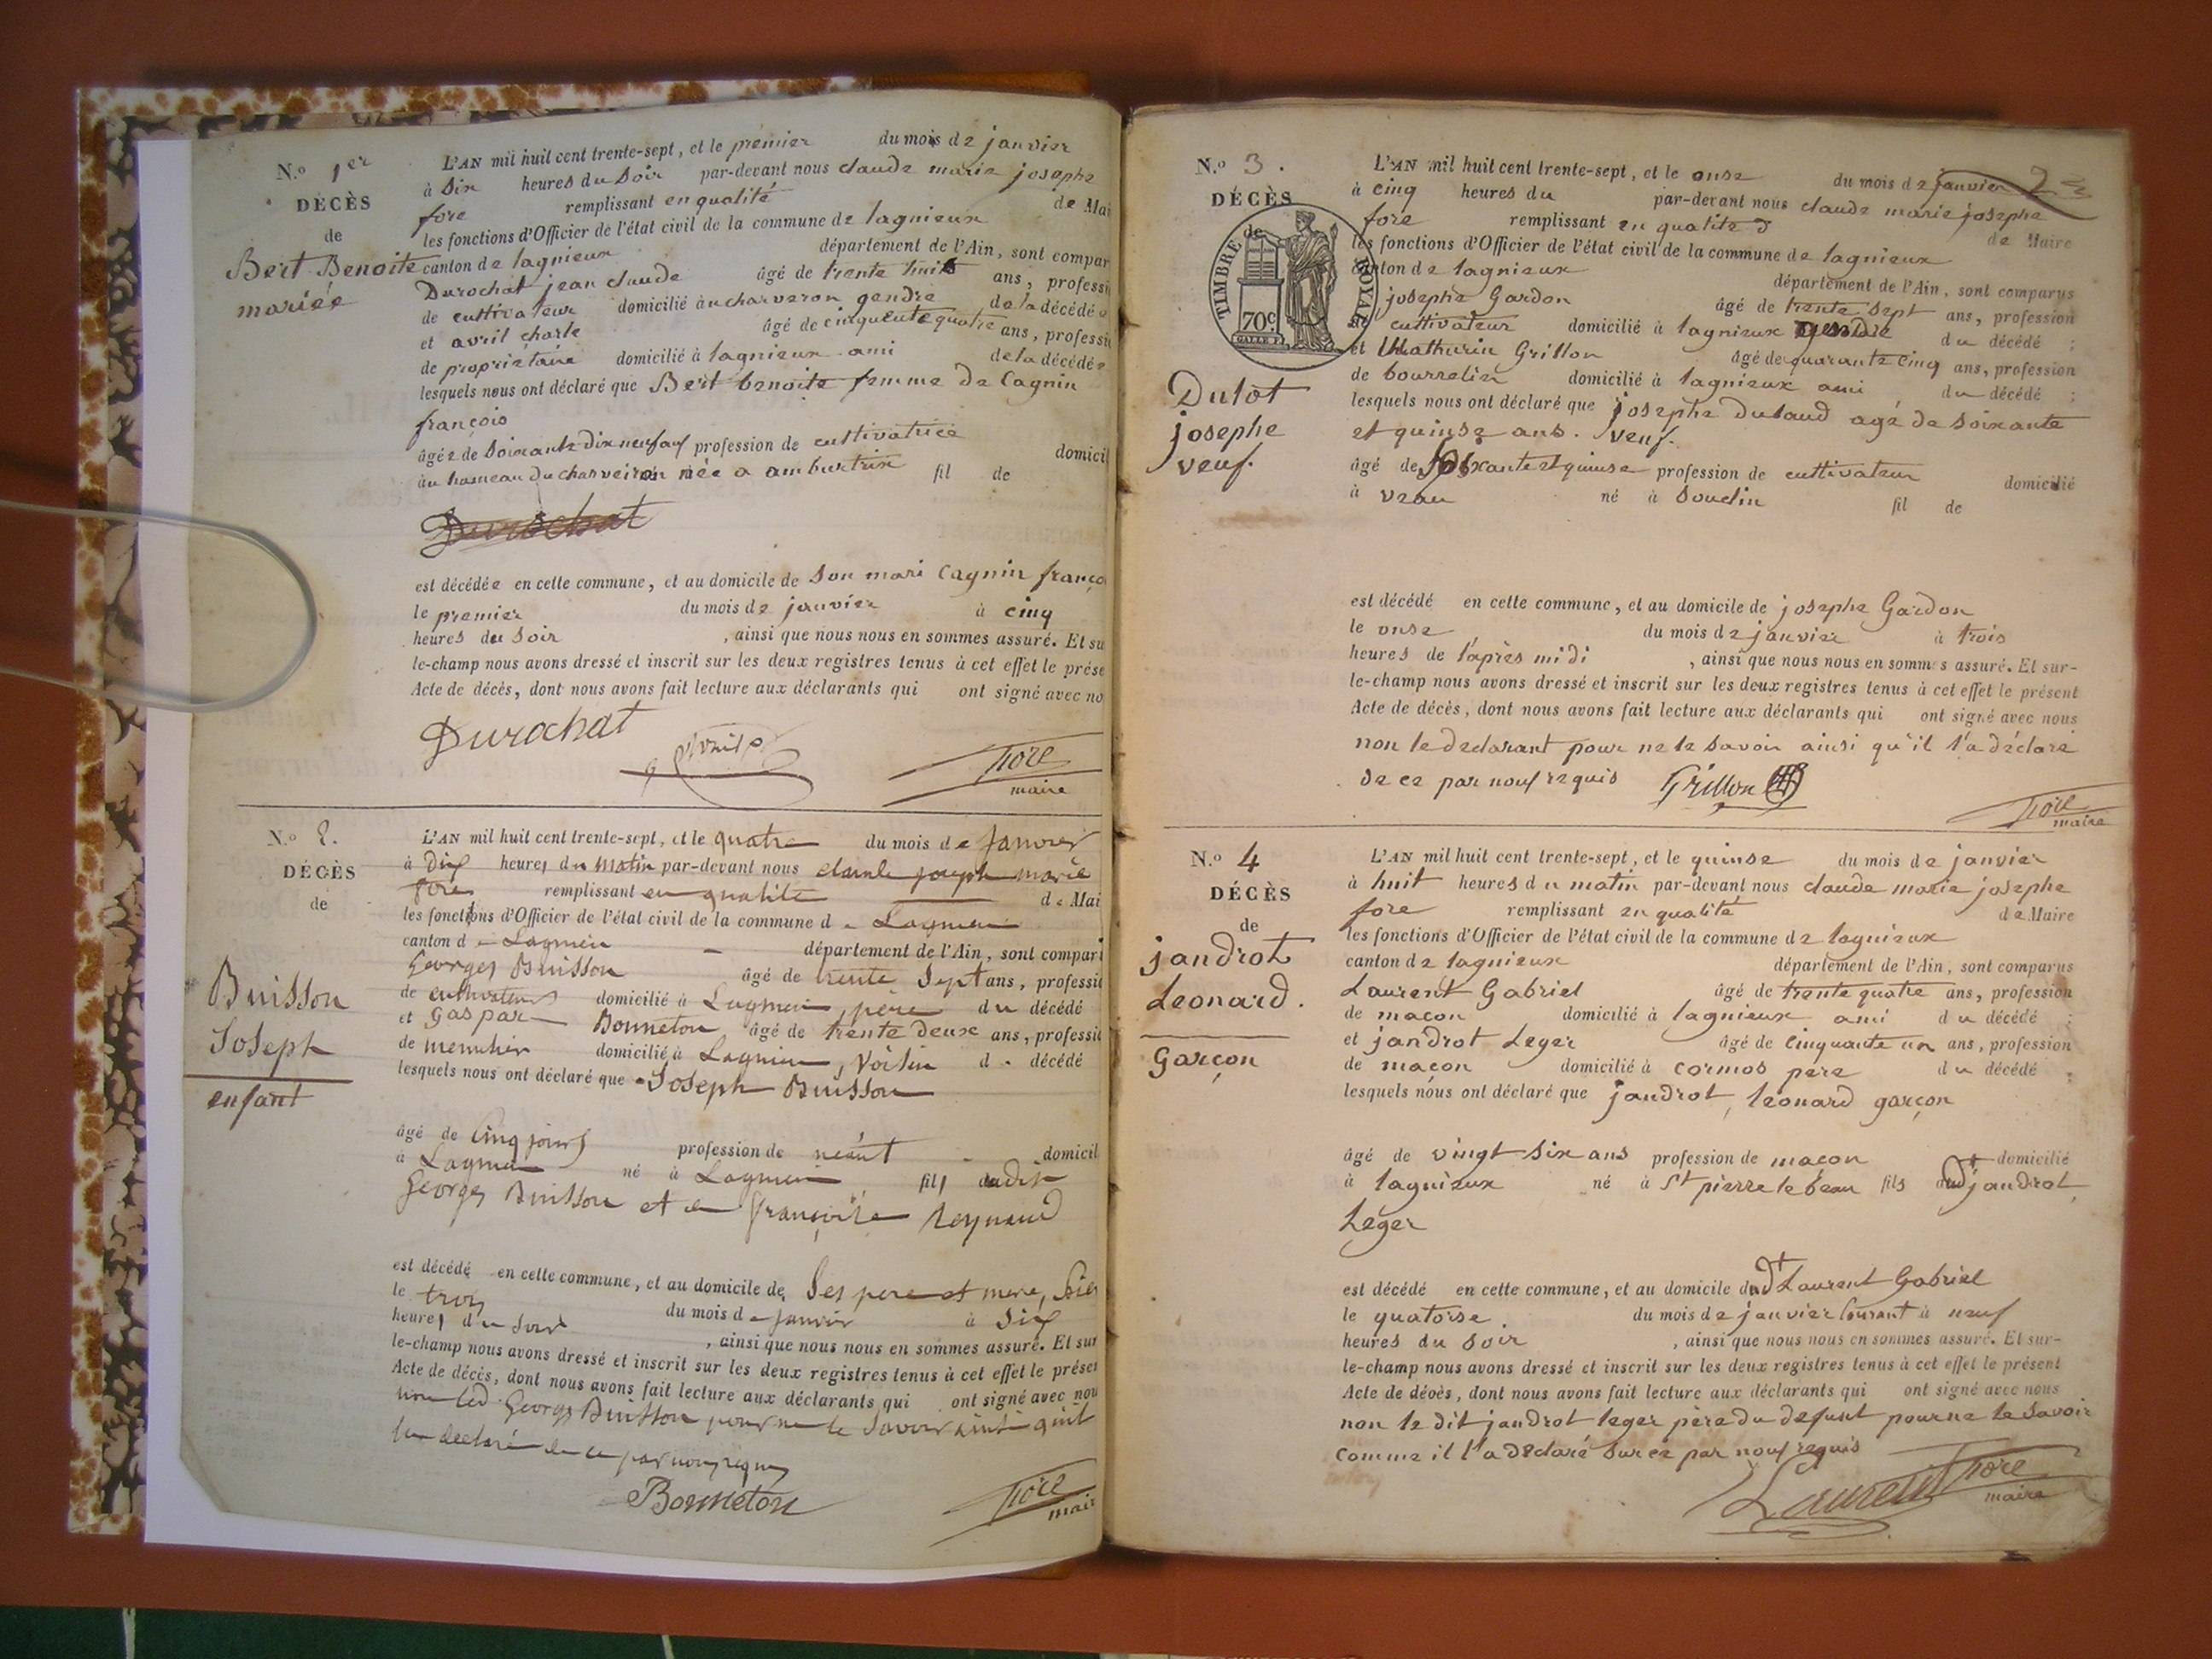 N.o 1er
DÉCÈS
de
Bert Benoite
mariée
L'AN mil huit cent trente-sept, et le premier du mois de janvier
à six heures du soir par-devant nous claude marie josephe
fore remplissant en qualité de Mai
les fonctions d'Officier de l'état civil de la commune de lagnieux
canton de lagnieux département de l'Ain, sont compar
Durochat jean claude âgé de trente huit ans, professi
de cultivateur domicilié au charveron gendre de la décédée
et avril charle âgé de cinquente quatre ans, professi
de propriétaire domicilié à lagnieux ami de la décédée
lesquels nous ont déclaré que Bert benoite femme de Cagnin
françois
âgée de soixante dix neuf ans profession de cultivatrice domicil
au hameau du charveiron née a ambutrix fil de
Durochat
est décédée en cette commune, et au domicile de son mari Cagnin franço
le premier du mois de janvier à cinq
heures du soir , ainsi que nous nous en sommes assuré. Et su
le-champ nous avons dressé et inscrit sur les deux registres tenus à cet effet le prése
Acte de décès, dont nous avons fait lecture aux déclarants qui ont signé avec no
Durochat
fore
maire
N.o 2.
DÉCÈS
de
Buisson
Joseph
enfant
L'AN mil huit cent trente-sept, et le quatre du mois de Janvier
à dix heures du matin par-devant nous claude joseph marie
fore remplissant en qualité de Mai
les fonctions d'Officier de l'état civil de la commune de Lagnieu
canton de Lagnieu département de l'Ain, sont compar
Georges Buisson âgé de trente sept ans, professi
de cultivateur domicilié à Lagnieu, père du décédé
et Gaspar Bonneton âgé de trente deux ans, professi
de menuisier domicilié à Lagnieu, voisin d décédé
lesquels nous ont déclaré que Joseph Buisson
âgé de cinq jours profession de néant domicil
à Lagnieu né à Lagnieu fils dudit
Georges Buisson et de Françoise Reynaud
est décédé en cette commune, et au domicile de ses pere et mere,
le trois du mois de janvier à six
heures du soir , ainsi que nous nous en sommes assuré. Et sur
le-champ nous avons dressé et inscrit sur les deux registres tenus à cet effet le présen
Acte de décès, dont nous avons fait lecture aux déclarants qui ont signé avec nou
non led. Georges Buisson pour ne le savoir ainsi quil
la declaré de ce par nous requis
Bonneton
fore
mair
N.o 3.
2
DÉCÈS
de
TIMBRE ROYAL
70c.
Dutot
josephe
veuf.
L'AN mil huit cent trente-sept, et le onse du mois de janvier
à cinq heures du par-devant nous claude marie josephe
fore remplissant en qualité d de Maire
les fonctions d'Officier de l'état civil de la commune de lagnieux
canton de lagnieux département de l'Ain, sont comparus
josephe Gardon âgé de trente sept ans, profession
de cultivateur domicilié à lagnieux gendre du décédé ;
et Mathurin Grillon âgé de quarante cinq ans, profession
de bourrelier domicilié à lagnieux ami du décédé ;
lesquels nous ont déclaré que josephe Dutaud agé de soixante
et quinse ans. veuf.
âgé de soixante et quinse profession de cultivateur domicilié
à veau né à Soudin fil de
est décédé en cette commune, et au domicile de josephe Gardon
le onse du mois de janvier à trois
heures de l'après midi , ainsi que nous nous en sommes assuré. Et sur-
le-champ nous avons dressé et inscrit sur les deux registres tenus à cet effet le présent
Acte de décès, dont nous avons fait lecture aux déclarants qui ont signé avec nous
non le declarant pour ne le savoir ainsi qu'il l'a déclaré
de ce par nous requis Grillon
fore
maire
N.o 4
DÉCÈS
de
jandrot
Leonard.
Garçon
L'AN mil huit cent trente-sept, et le quinse du mois de janvier
à huit heures du matin par-devant nous claude marie josephe
fore remplissant en qualité de Maire
les fonctions d'Officier de l'état civil de la commune de lagnieux
canton de lagnieux département de l'Ain, sont comparus
Laurent Gabriel âgé de trente quatre ans, profession
de maçon domicilié à lagnieux ami du décédé ;
et jandrot Leger âgé de cinquante un ans, profession
de maçon domicilié à cormos pere du décédé ;
lesquels nous ont déclaré que jandrot, léonard garçon
âgé de vingt six ans profession de maçon domicilié
à lagnieux né à St pierre le beau fils dudt jandrot
Léger
est décédé en cette commune, et au domicile dudt Laurent Gabriel
le quatorse. du mois de janvier Courant à neuf
heures du soir , ainsi que nous nous en sommes assuré. Et sur-
le-champ nous avons dressé et inscrit sur les deux registres tenus à cet effet le présent
Acte de décès, dont nous avons fait lecture aux déclarants qui ont signé avec nous
non le dit jandrot leger père du défunt pour ne le savoir
comme il l'a déclaré sur ce par nous requis
Laurent fore
maire